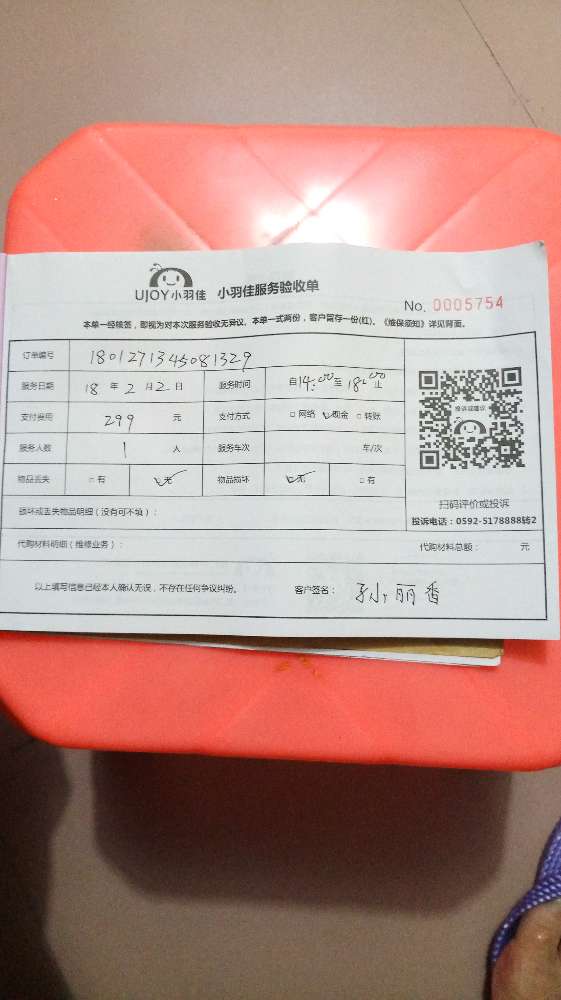 UJOY小羽佳 小羽佳服务验收单
No. 0005754
本单一经续签，即视为对本次服务验收无异议。本单一式两份，客户留存一份(红)。《维保须知》详见背面。
订单编号 1801271345081329
服务日期 18 年 2 月 2 日 服务时间 自14:00至18:00止
支付费用 299 元 支付方式 □ 网络 ☑现金 □ 转账
服务人数 1 人 服务车次 车/次
物品丢失 □ 有 ☑无 物品损坏 ☑无 □ 有
投诉或建议
扫码评价或投诉
投诉电话：0592-5178888转2
损坏或丢失物品明细（没有可不填）：
代购材料明细（维修业务）： 代购材料总额： 元
以上填写信息已经本人确认无误，不存在任何争议纠纷。 客户签名： 孙丽香